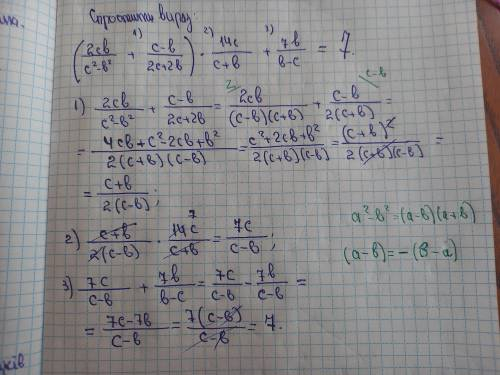 Спростити вираз:
(2cb/(c²-b²) + (c-b)/(2c+2b)) · 14c/(c+b) + 7b/(b-c) = 7.
1) 2)  3)
1) 2cb/(c²-b²) + (c-b)/(2c+2b) = 2cb/((c-b)(c+b)) + (c-b)/(2(c+b)) =
2 c-b
= (4cb+c²-2cb+b²)/(2(c+b)(c-b)) = (c²+2cb+b²)/(2(c+b)(c-b)) = (c+b)²/(2(c+b)(c-b)) =
= (c+b)/(2(c-b));
2) (c+b)/(2(c-b)) · 14c/(c+b) = 7c/(c-b);
7
a²-b²=(a-b)(a+b)
(a-b)=-(b-a)
3) 7c/(c-b) + 7b/(b-c) = 7c/(c-b) - 7b/(c-b) =
= (7c-7b)/(c-b) = 7(c-b)/(c-b) = 7.